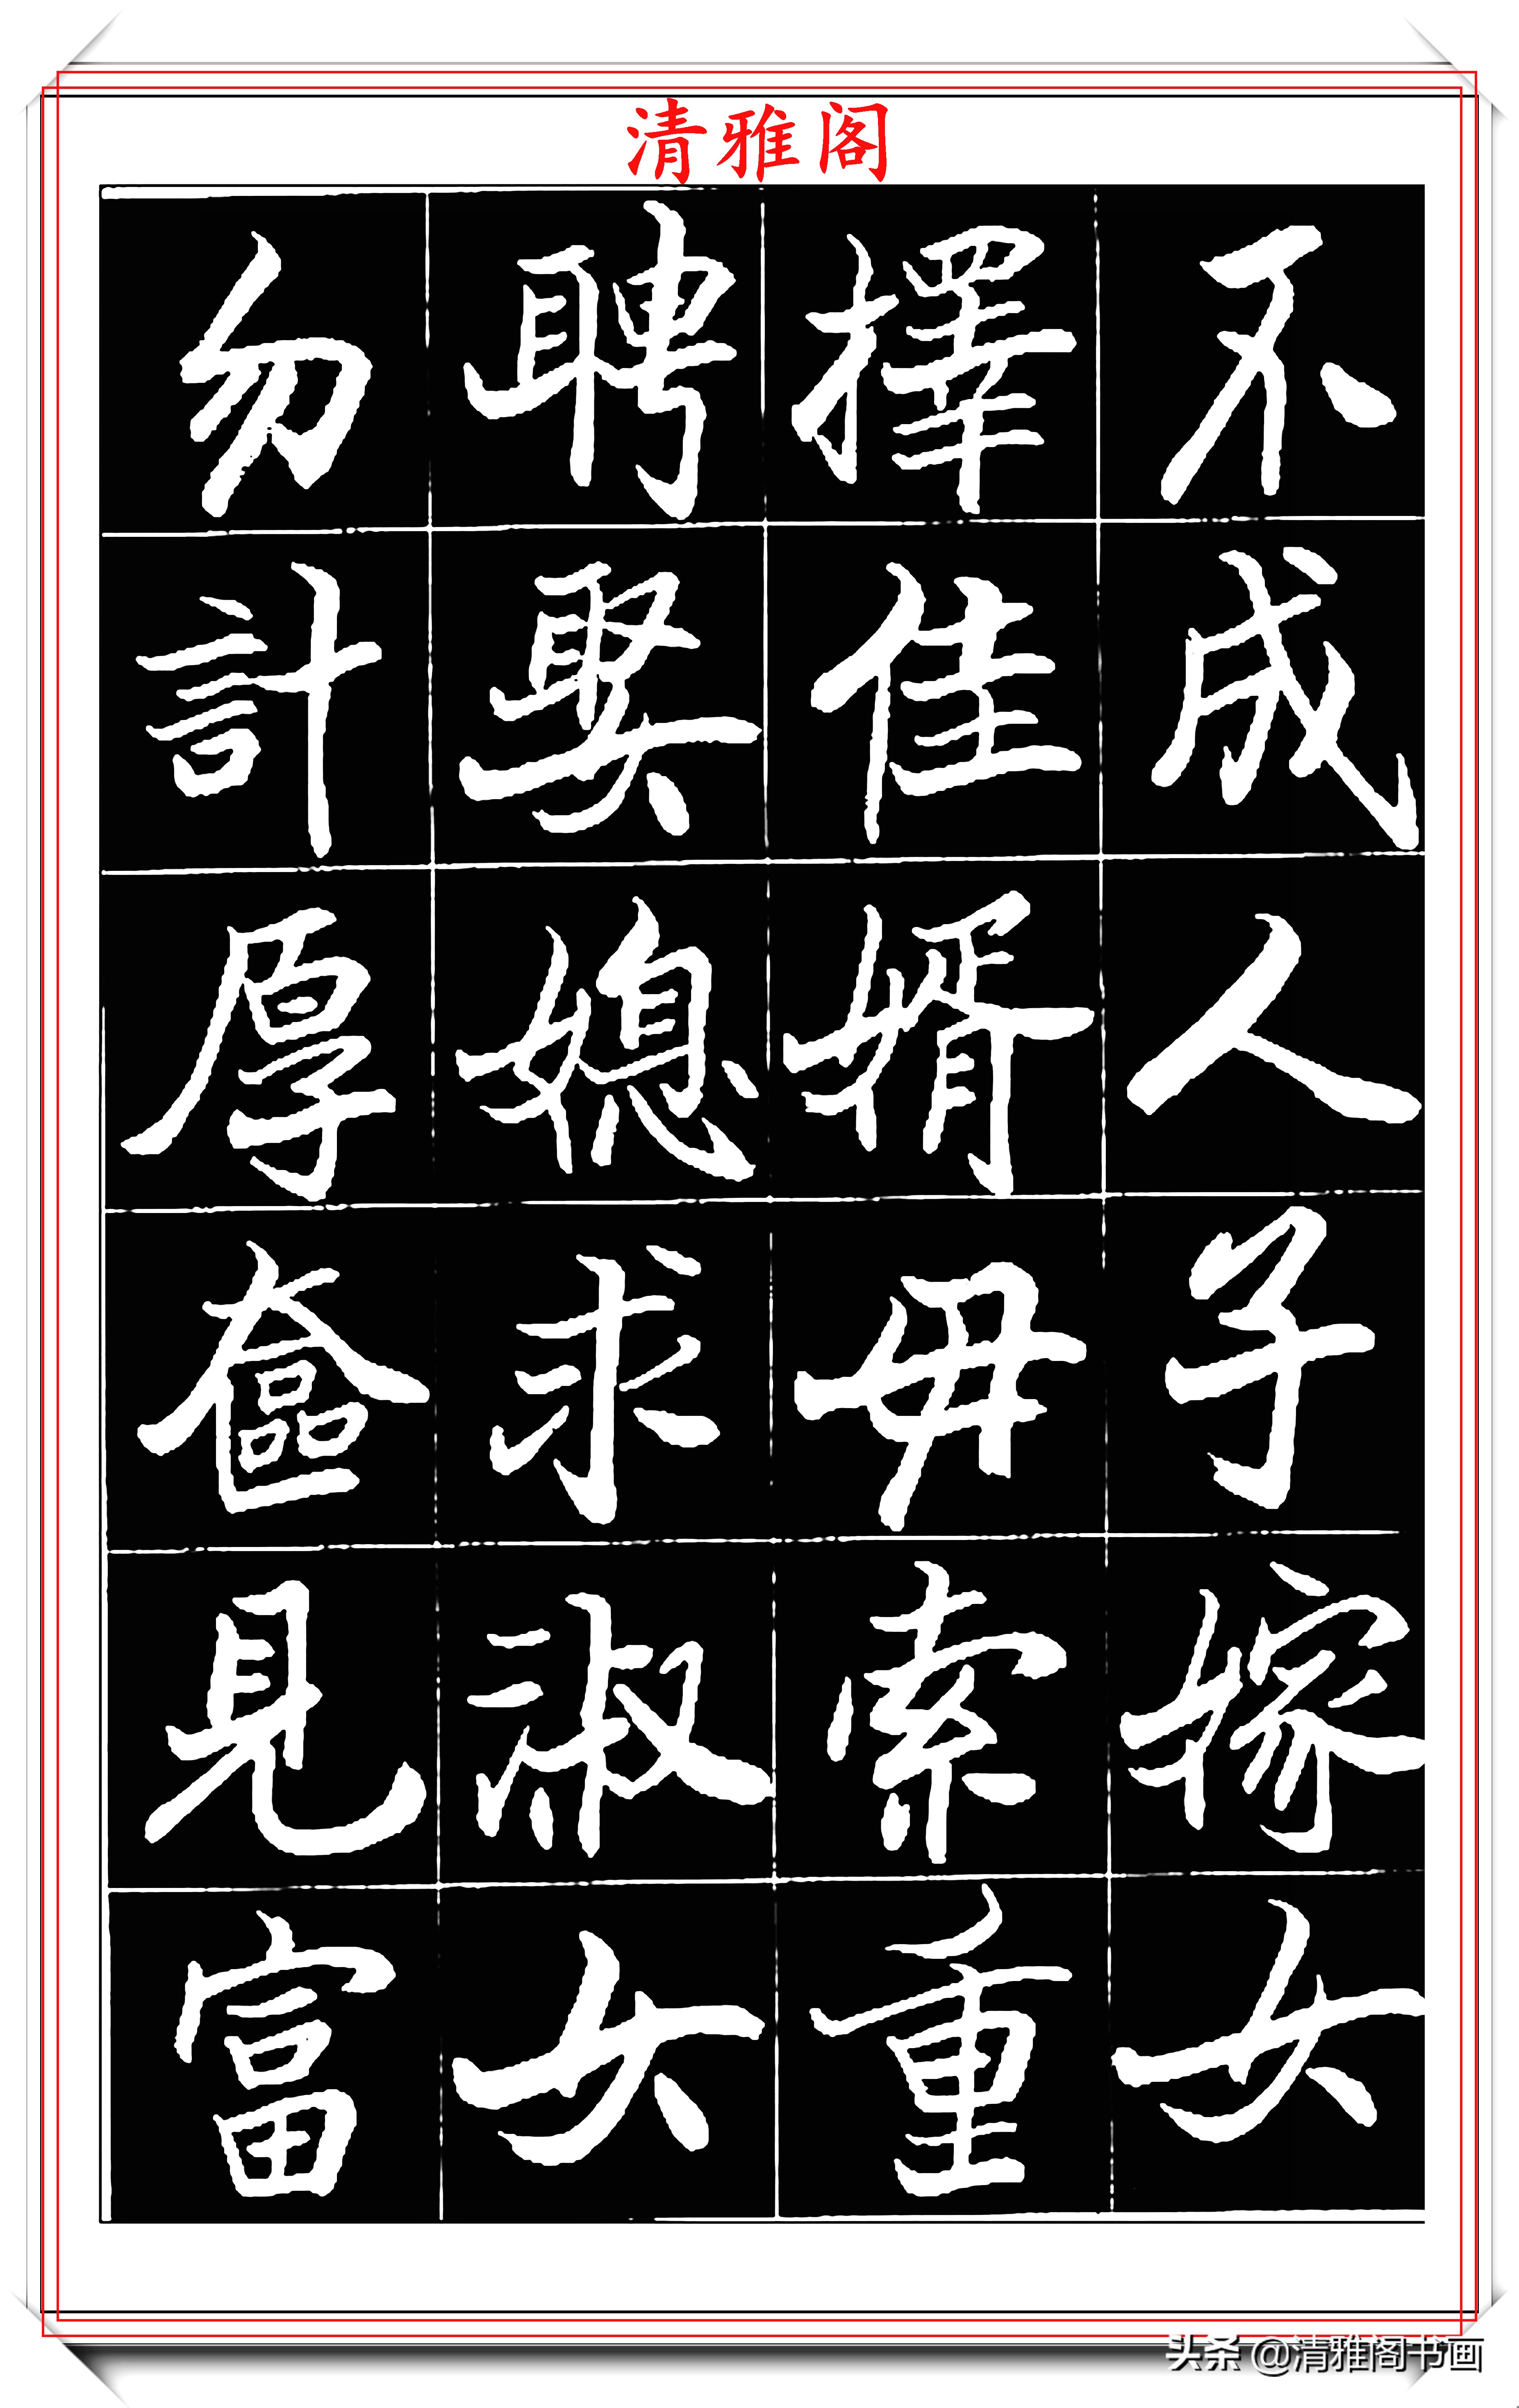 清雅阁
不成人子嫁女
擇佳婿毋索重
聘娶媳求淑女
勿計厚奩見富
头条 @清雅阁书画